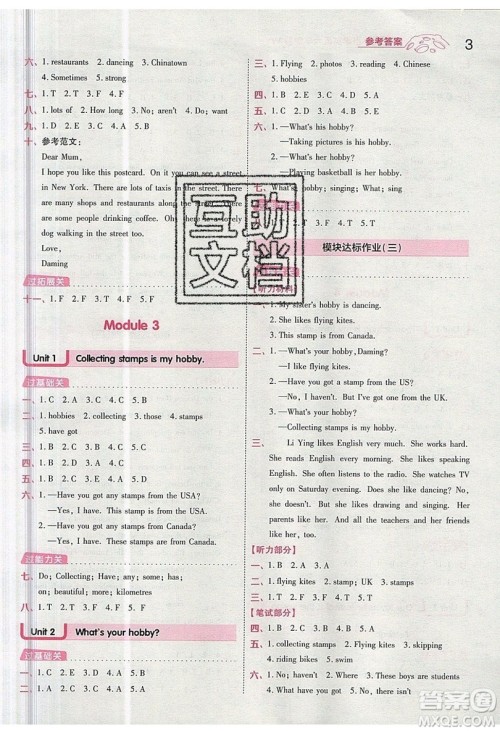 参考答案 3
六、1. restaurants 2. dancing 3. Chinatown
4. Sometimes 5. strong
七、1. T 2. T 3. F 4. F
八、1. lots of 2. How long 3. No; aren't 4. of
九、1. D 2. E 3. A 4. F 5. C
十、参考范文:
Dear Mum,
I hope you like this postcard. You can see a street
in New York. There are lots of taxis in the street. There
are many shops and restaurants in the street. There
are some people drinking coffee. There is a lovely
dog walking in the street too.
Love,
Daming
过拓展关
十一、1. F 2. F 3. T 4. F 5. F
Module 3
Unit 1 Collecting stamps is my hobby.
过基础关
一、1. C 2. A 3. C 4. A 5. B
二、1. hobbies 2. collecting 3. those 4. stamps
5. have got
三、1. B 2. C 3. A 4. C 5. B
四、1. B 2. E 3. A 4. C 5. D
五、1. D 2. C 3. D 4. A 5. B
六、1. —Have you got any stamps from the USA?
—Yes, I have. This stamp is from the USA.
2. —Have you got any stamps from Canada?
—Yes, I have. These stamps are from Canada.
过能力关
七、Do; Collecting; Have; any; some; has;
on; beautiful; more; kilometres
八、1. T 2. T 3. F 4. T 5. F
Unit 2 What's your hobby?
过基础关
一、1. B 2. E 3. D 4. A 5. C
二、1. C 2. A 3. A 4. C 5. B
三、1. Flying 2. photos 3. reading 4. Chinese
5. hobbies
四、1. B 2. A 3. C 4. A 5. B
五、1. B 2. D 3. E 4. A 5. C
六、1. —What's his hobby?
—Taking pictures is his hobby.
2. —What's her hobby?
—Playing basketball is her hobby.
七、What's; hobby; singing; What; singing
模块达标作业(三)
听力材料
一、1. My sister's hobby is dancing.
2. She likes flying kites.
3. This stamp is from Canada.
二、1. —What's your hobby, Daming?
—I like flying kites.
2. —Have you got a stamp from the US?
—No, I haven't. But I've got one from the UK.
3. —What's your hobby?
—Collecting stamps is my hobby.
三、 Li Ying likes English very much. She works hard.
She reads English every day. She likes speaking
English. She often listens to the radio. She watches TV
only on Saturday evening. Does she like dancing? No,
she doesn't. She likes drawing and singing. Her
parents like her. And all her teachers and friends like
her, too.
【听力部分】
一、1. B 2. A 3. C
二、1. flying kites 2. stamp; UK 3. stamps
三、1. B 2. A 3. C 4. A 5. C
【笔试部分】
四、1. B 2. C 3. C 4. A 5. B
五、1. collecting stamps 2. flying kites 3. skipping
4. riding bikes 5. swim
六、1. has got 2. How about 3. doesn't read
4. What have you got 5. No, there isn't
互助文档
答案圈
MXQE.COM